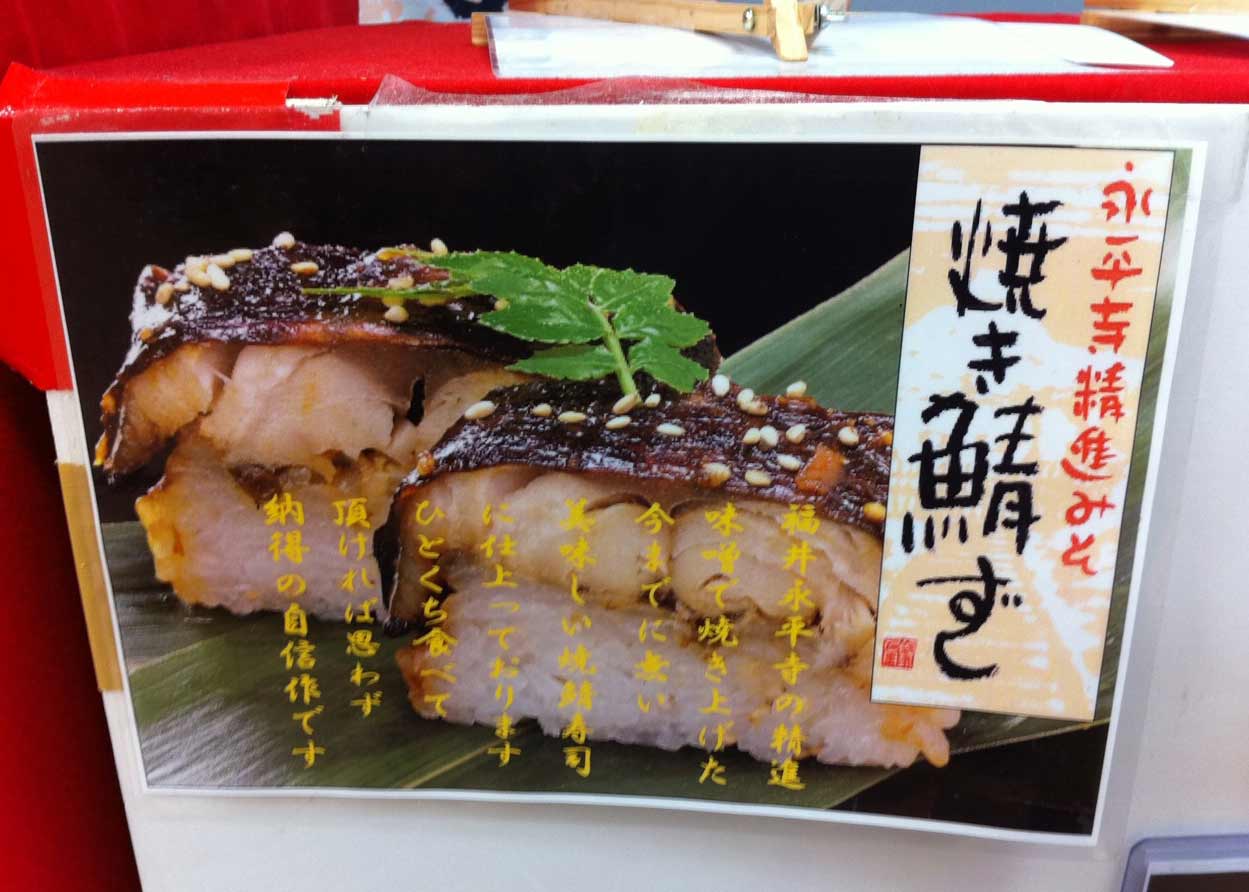 永平寺精進みそ
焼き鯖ずし
福井永平寺の精進
味噌で焼き上げた
今までに無い
美味しい焼鯖寿司
に仕上っております
ひとくち食べて
頂ければ思わず
納得の自信作です